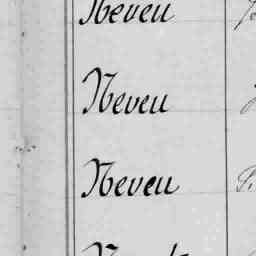 Neveu
Neveu
Neveu